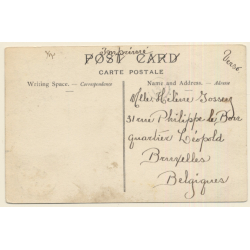 Imprimé
POST CARD
CARTE POSTALE
Writing Space. — Correspondence
Name and Address. —
Mlle Hélène Gosser
rue Philippe le Bon
quartier Léopold
Bruxelles
Belgique